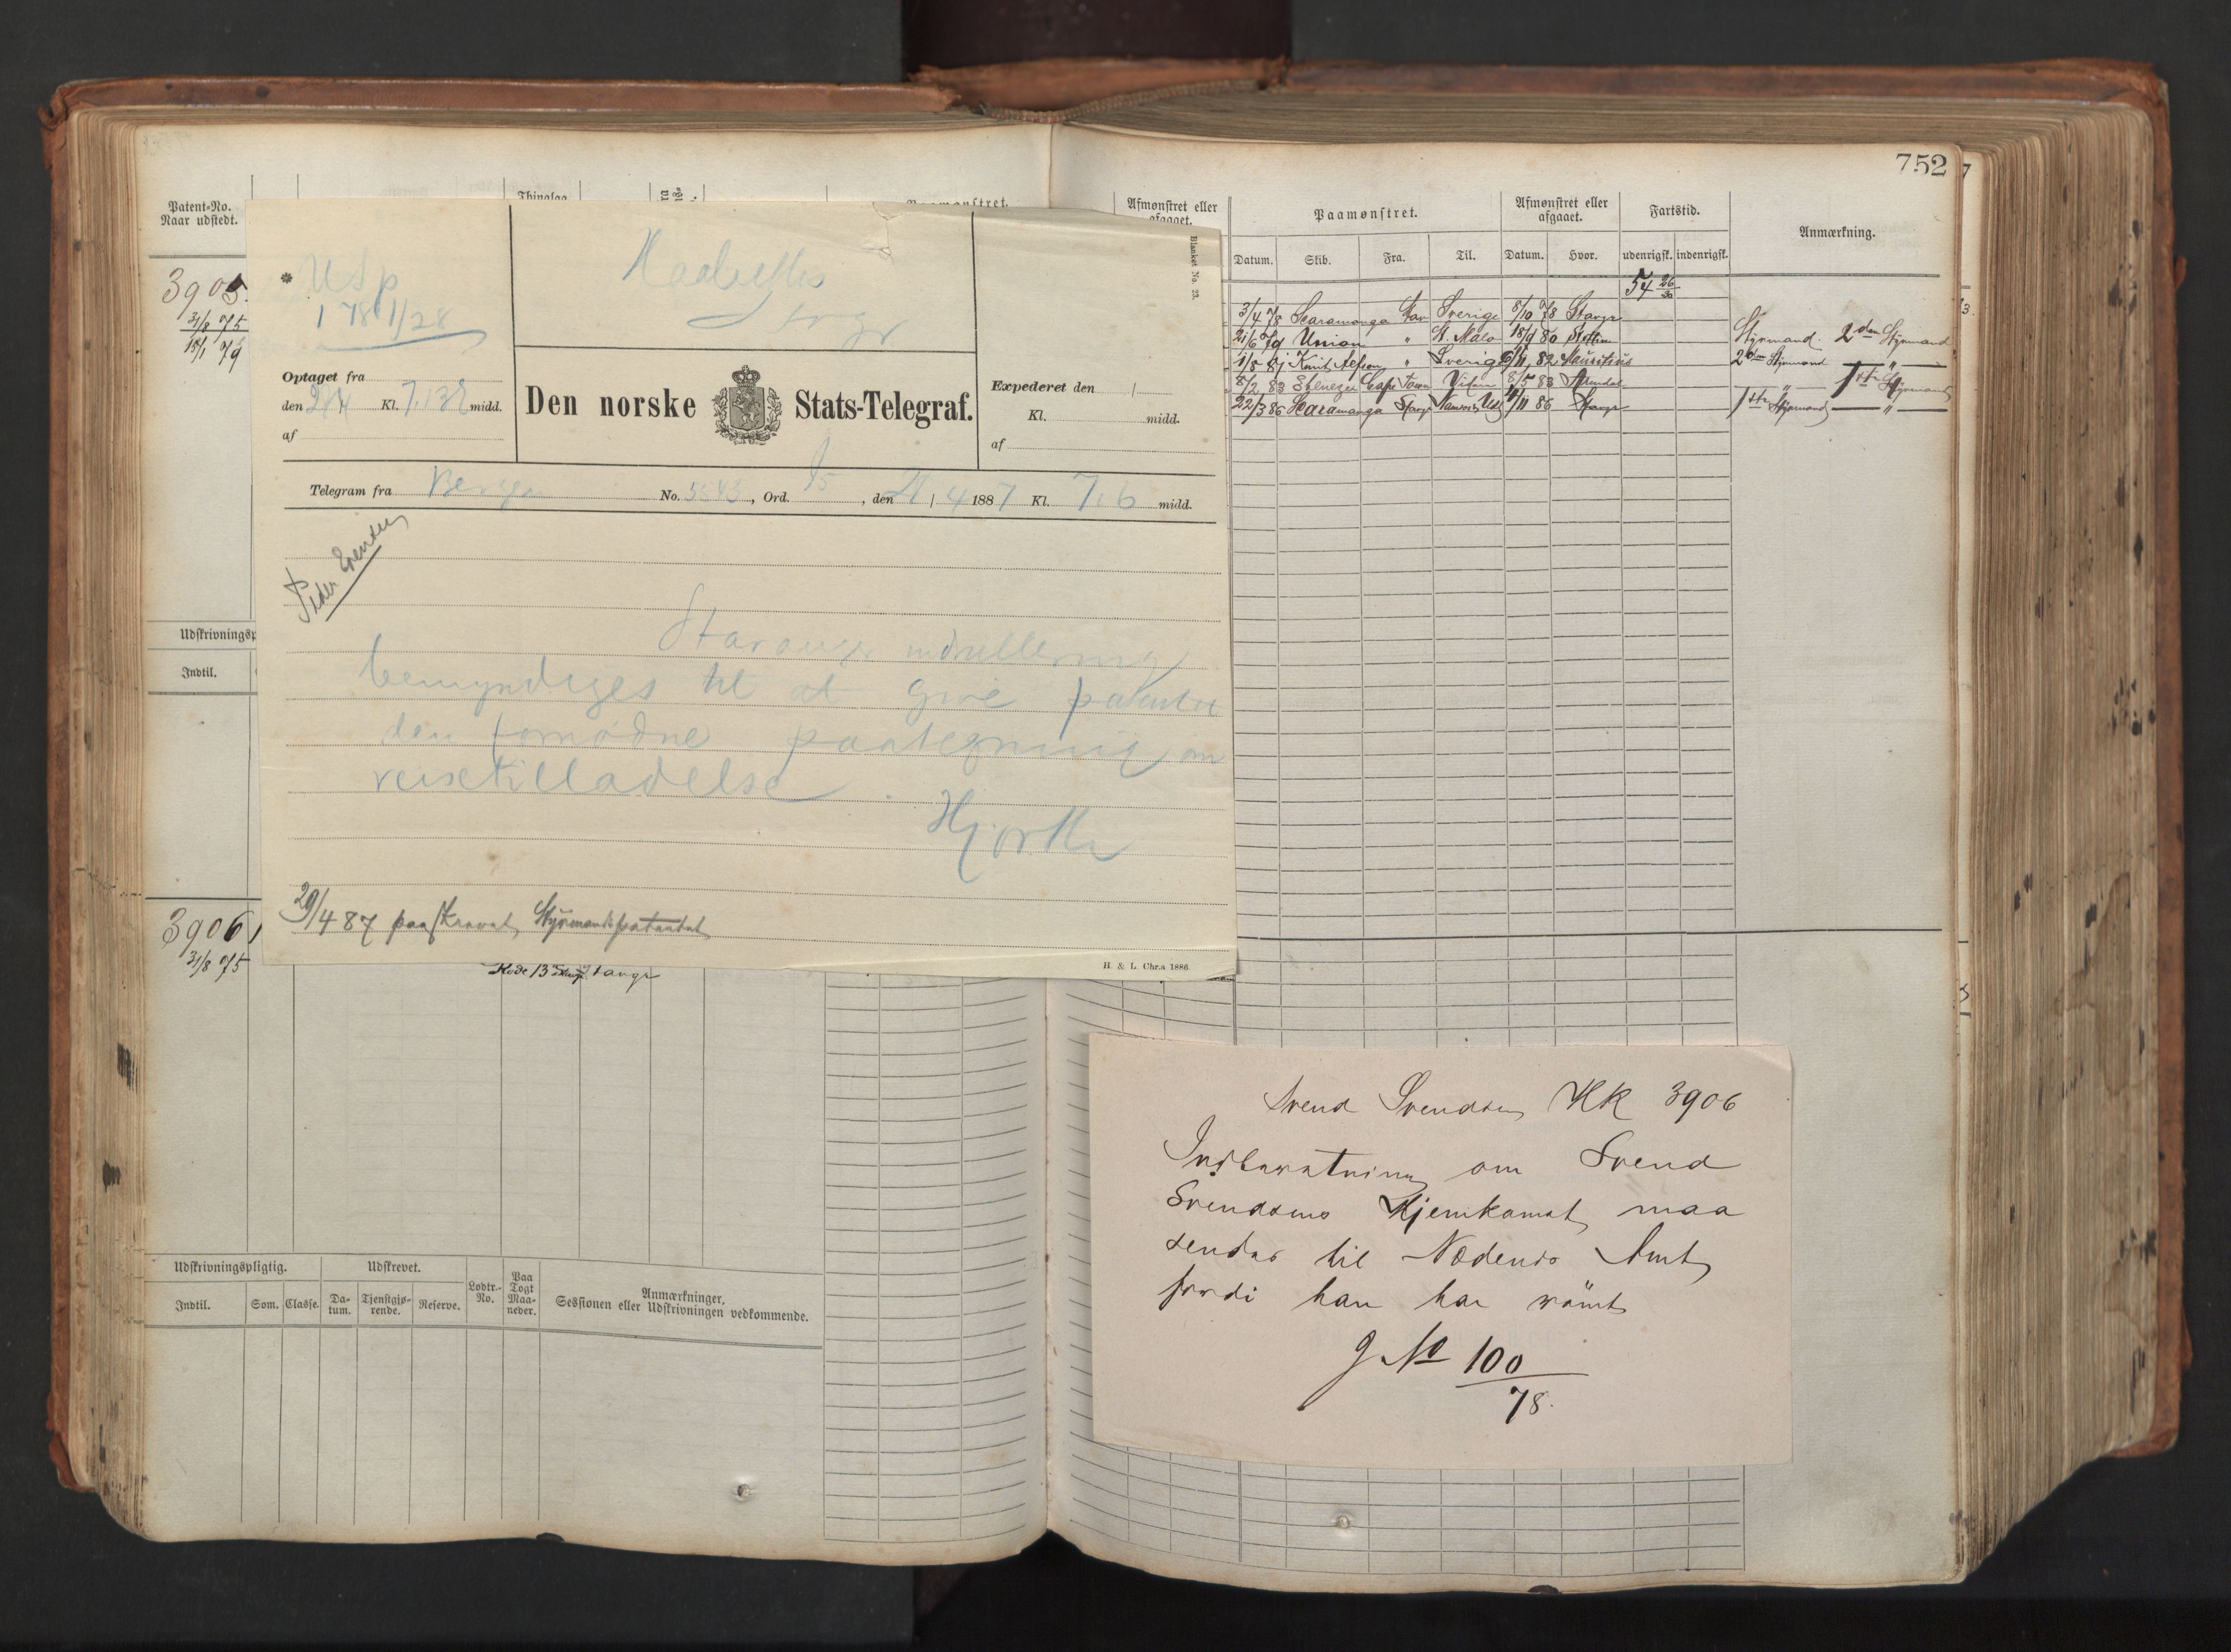 752
Patent-No.
Naar udstedt.
Thinglag
Paamønstret.
3905.
31/8 75
15/1 79
Udskrivningsp
Indtil.
3906
31/8 75
Rode 13 Stavgr
Blanket No. 23.
Stvgr
Optaget fra
den 21/4 Kl. midd.
af
Den norske Stats-Telegraf.
Expederet den /
Kl. midd.
af
Telegram fra Bergen No. , Ord. , den 21/4 1887 Kl. 7.6 midd.
Peder Svendsen
Stavanger indrullering
bemyndiges til at give patentet
den fornødne paategning om
reisetilladelse.
Hjorth
29/4 87 paaskrevet Styrmandspatentet
H. & L. Chr.a 1886.
Udskrivningspligtig. Udskrevet. Lodtr.-No. Paa Togt Maa-neder. Anmærkninger, Sessionen eller Udskrivningen vedkommende.
Indtil. Som. Classe. Da-tum. Tjenstgjø-rende. Reserve.
Afmønstret eller
afgaaet.
Paamønstret. Afmønstret eller afgaaet. Fartstid. Anmærkning.
Datum. Skib. Fra. Til. Datum. Hvor. udenrigsk. indenrigsk.
54 26/30
3/4 78 Scaramanga Stav Sverige 8/10 78 Stavgr
21/6 79 Union " St. Malo 18/9 80 Stettin Styrmand. 2den Styrmand
1/8 81 " Sverige 82 Mauritius 2den Styrmand "
8/2 83 Ebenezer Cape Town 8/5 83 " 1ste Styrmand
22/3 86 Scaramanga Stavgr 11 86 Stavgr 1ste Styrmand "
Svend Svendsen HK 3906
Indberetning om Svend
Svendsens Hjemkomst maa
sendes til Nedenes Amt
fordi han har rømt
J No 100
78.